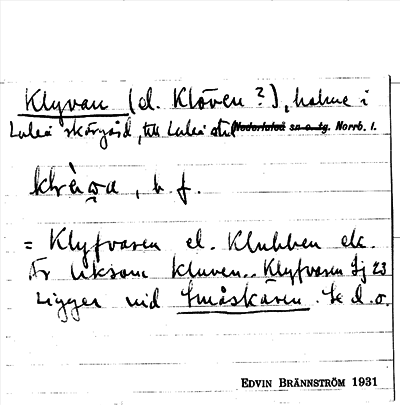 Klyvan (el. Klöven?), holme i
Luleå skärgård, till Luleå stad Nederluleå sn o. tg. Norrb. l.
b. f.
= Klyfvaren el. Klubben etc.
Är liksom kluven.. Klyfvaren Sj 23
Ligger vid Småskären. Se d. o.
EDVIN BRÄNNSTRÖM 1931